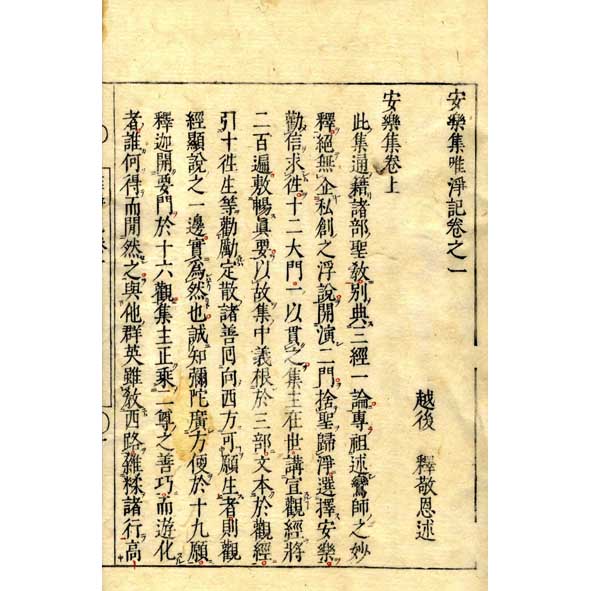 安樂集唯淨記卷之一
越後 釋敬恩述
安樂集卷上
此集通籍諸部聖教別典三經一論專祖述鸞師之妙
釋絕無企私創之浮說開演二門捨聖歸淨選擇安樂
勸信求徃十二大門一以貫之集主在世講宣觀經將
二百遍敷暢眞要以故集中義根於三部文本於觀經
引十徃生等勸勵定散諸善囘向西方可願生者則觀
經顯說之一邊實爲然也誠知彌陀廣方便於十九願
釋迦開要門於十六觀集主正乘二尊之善巧而遊化
者誰何得而閒然之與他群英雖教西路雜糅諸行高